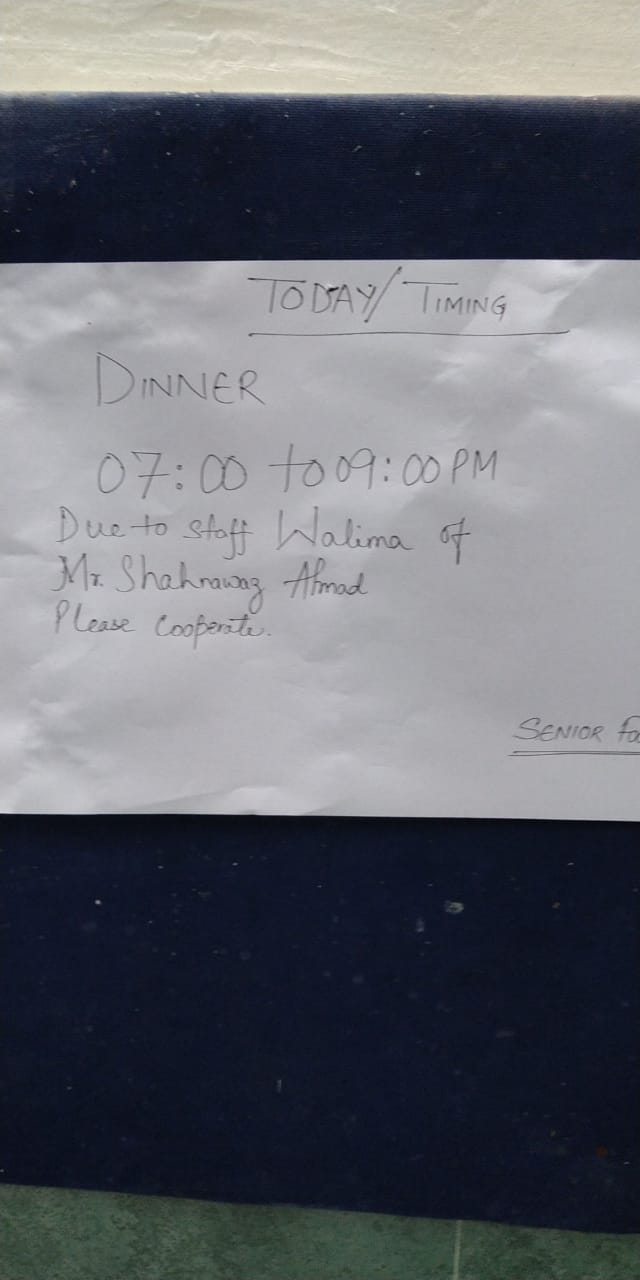 TODAY/ TIMING
DINNER
07:00 to 09:00 PM
Due to staff Walima of
Mr. Shahnawaz Ahmad
Please Cooperate.
SENIOR